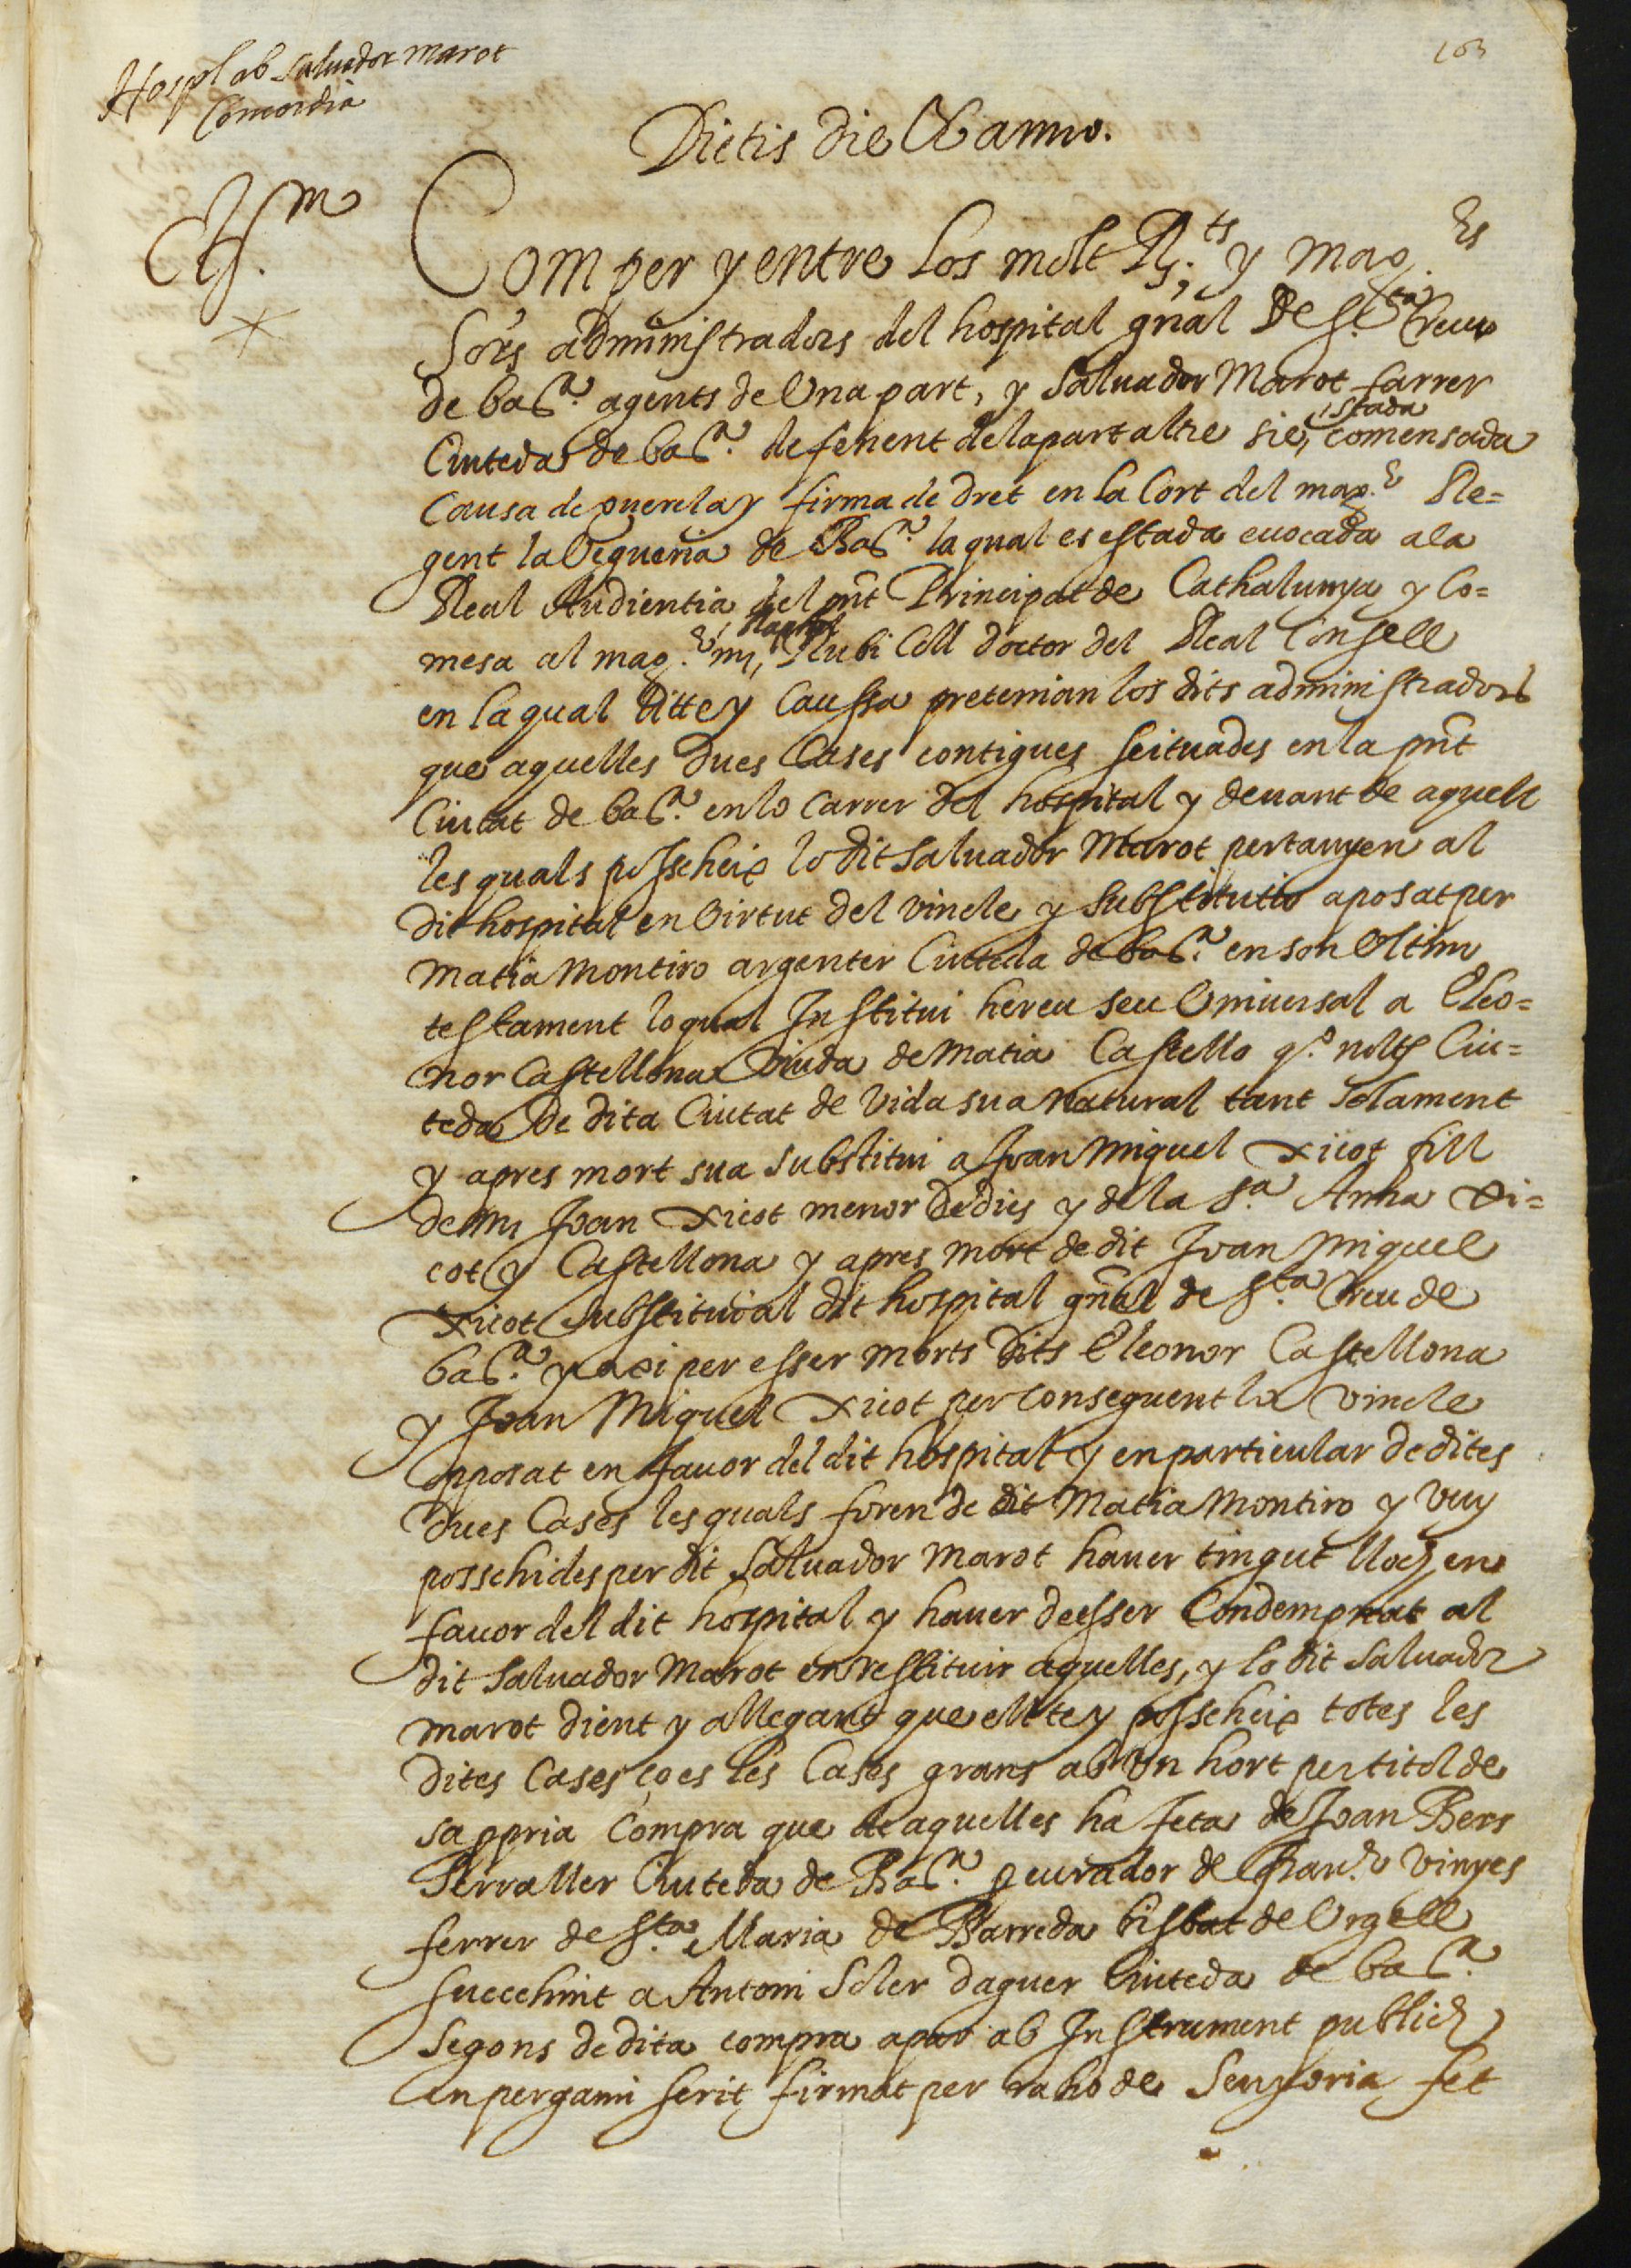 163
Hospl ab Saluador Marot
Concordia
Dictis die & anno.
Com per y entre los molt Rts. y mag.es
Sors administradors del hospital gnal de S.ta Creu
de bar.na agents de Vna part, y Saluador Marot farrer
Ciuteda de bar.na defenent de la part altre sie, stada comensada
Causa de querela y firma de dret en la Cort del mag.ch Re=
gent la Vegueria de Bar.na la qual es estada euocada a la
Real Audientia del pnt Principat de Cathalunya y Co=
mesa al mag.ch mi, Rubi Coll doctor del Real Consell
en la qual litte y Caussa pretenian los dits administradors
que aquelles dues Cases contigues scituades en la pnt
Ciutat de bar.na en lo Carrer del hospital y deuant de aquell
les quals posseheix lo dit Saluador Marot pertanyen al
dit hospital en Virtut del vincle y substitutio aposat per
Matia Montiro argenter Ciuteda de bar.na en son Vltim
testament lo qual Institui hereu seu Vniuersal a Eleo=
nor Castellona Viuda de Matia Castello q.o Ciu=
teda de dita Ciutat de Vida sua natural tant solament
y apres mort sua substitui a Joan Miquel Xicot fill
de mi Joan Xicot menor de dies y de la S.a Anna Xi=
cot y Castellona y apres mort de dit Joan Miquel
Xicot substitui al dit hospital gnal de S.ta Creu de
bar.na y axi per esser morts dits Eleonor Castellona
y Joan Miquel Xicot per consequent lo vincle
opposat en fauor del dit hospital y en particular de dites
dues Cases les quals foren de dit Matia Montiro y vuy
possehides per dit Saluador Marot hauer tingut lloch en
fauor del dit hospital y hauer de esser Condempnat al
dit Saluador Marot en restituir aquelles, y lo dit Saluador
Marot dient y allegant que ell te y posseheix totes les
dites Cases ço es les Cases grans ab Vn hort per titol de
sa ppria Compra que de aquelles ha feta de Joan Bers
Serraller Ciuteda de Bar.na pcurador de Fran.ch Vinyes
ferrer de S.ta Maria de Barreda bisbat de Vrgell
succehint a Antoni Soler daguer Ciuteda de bar.na
Segons de dita compra apar ab Instrument publich
en pergami scrit firmat per raho de Senyoria fet